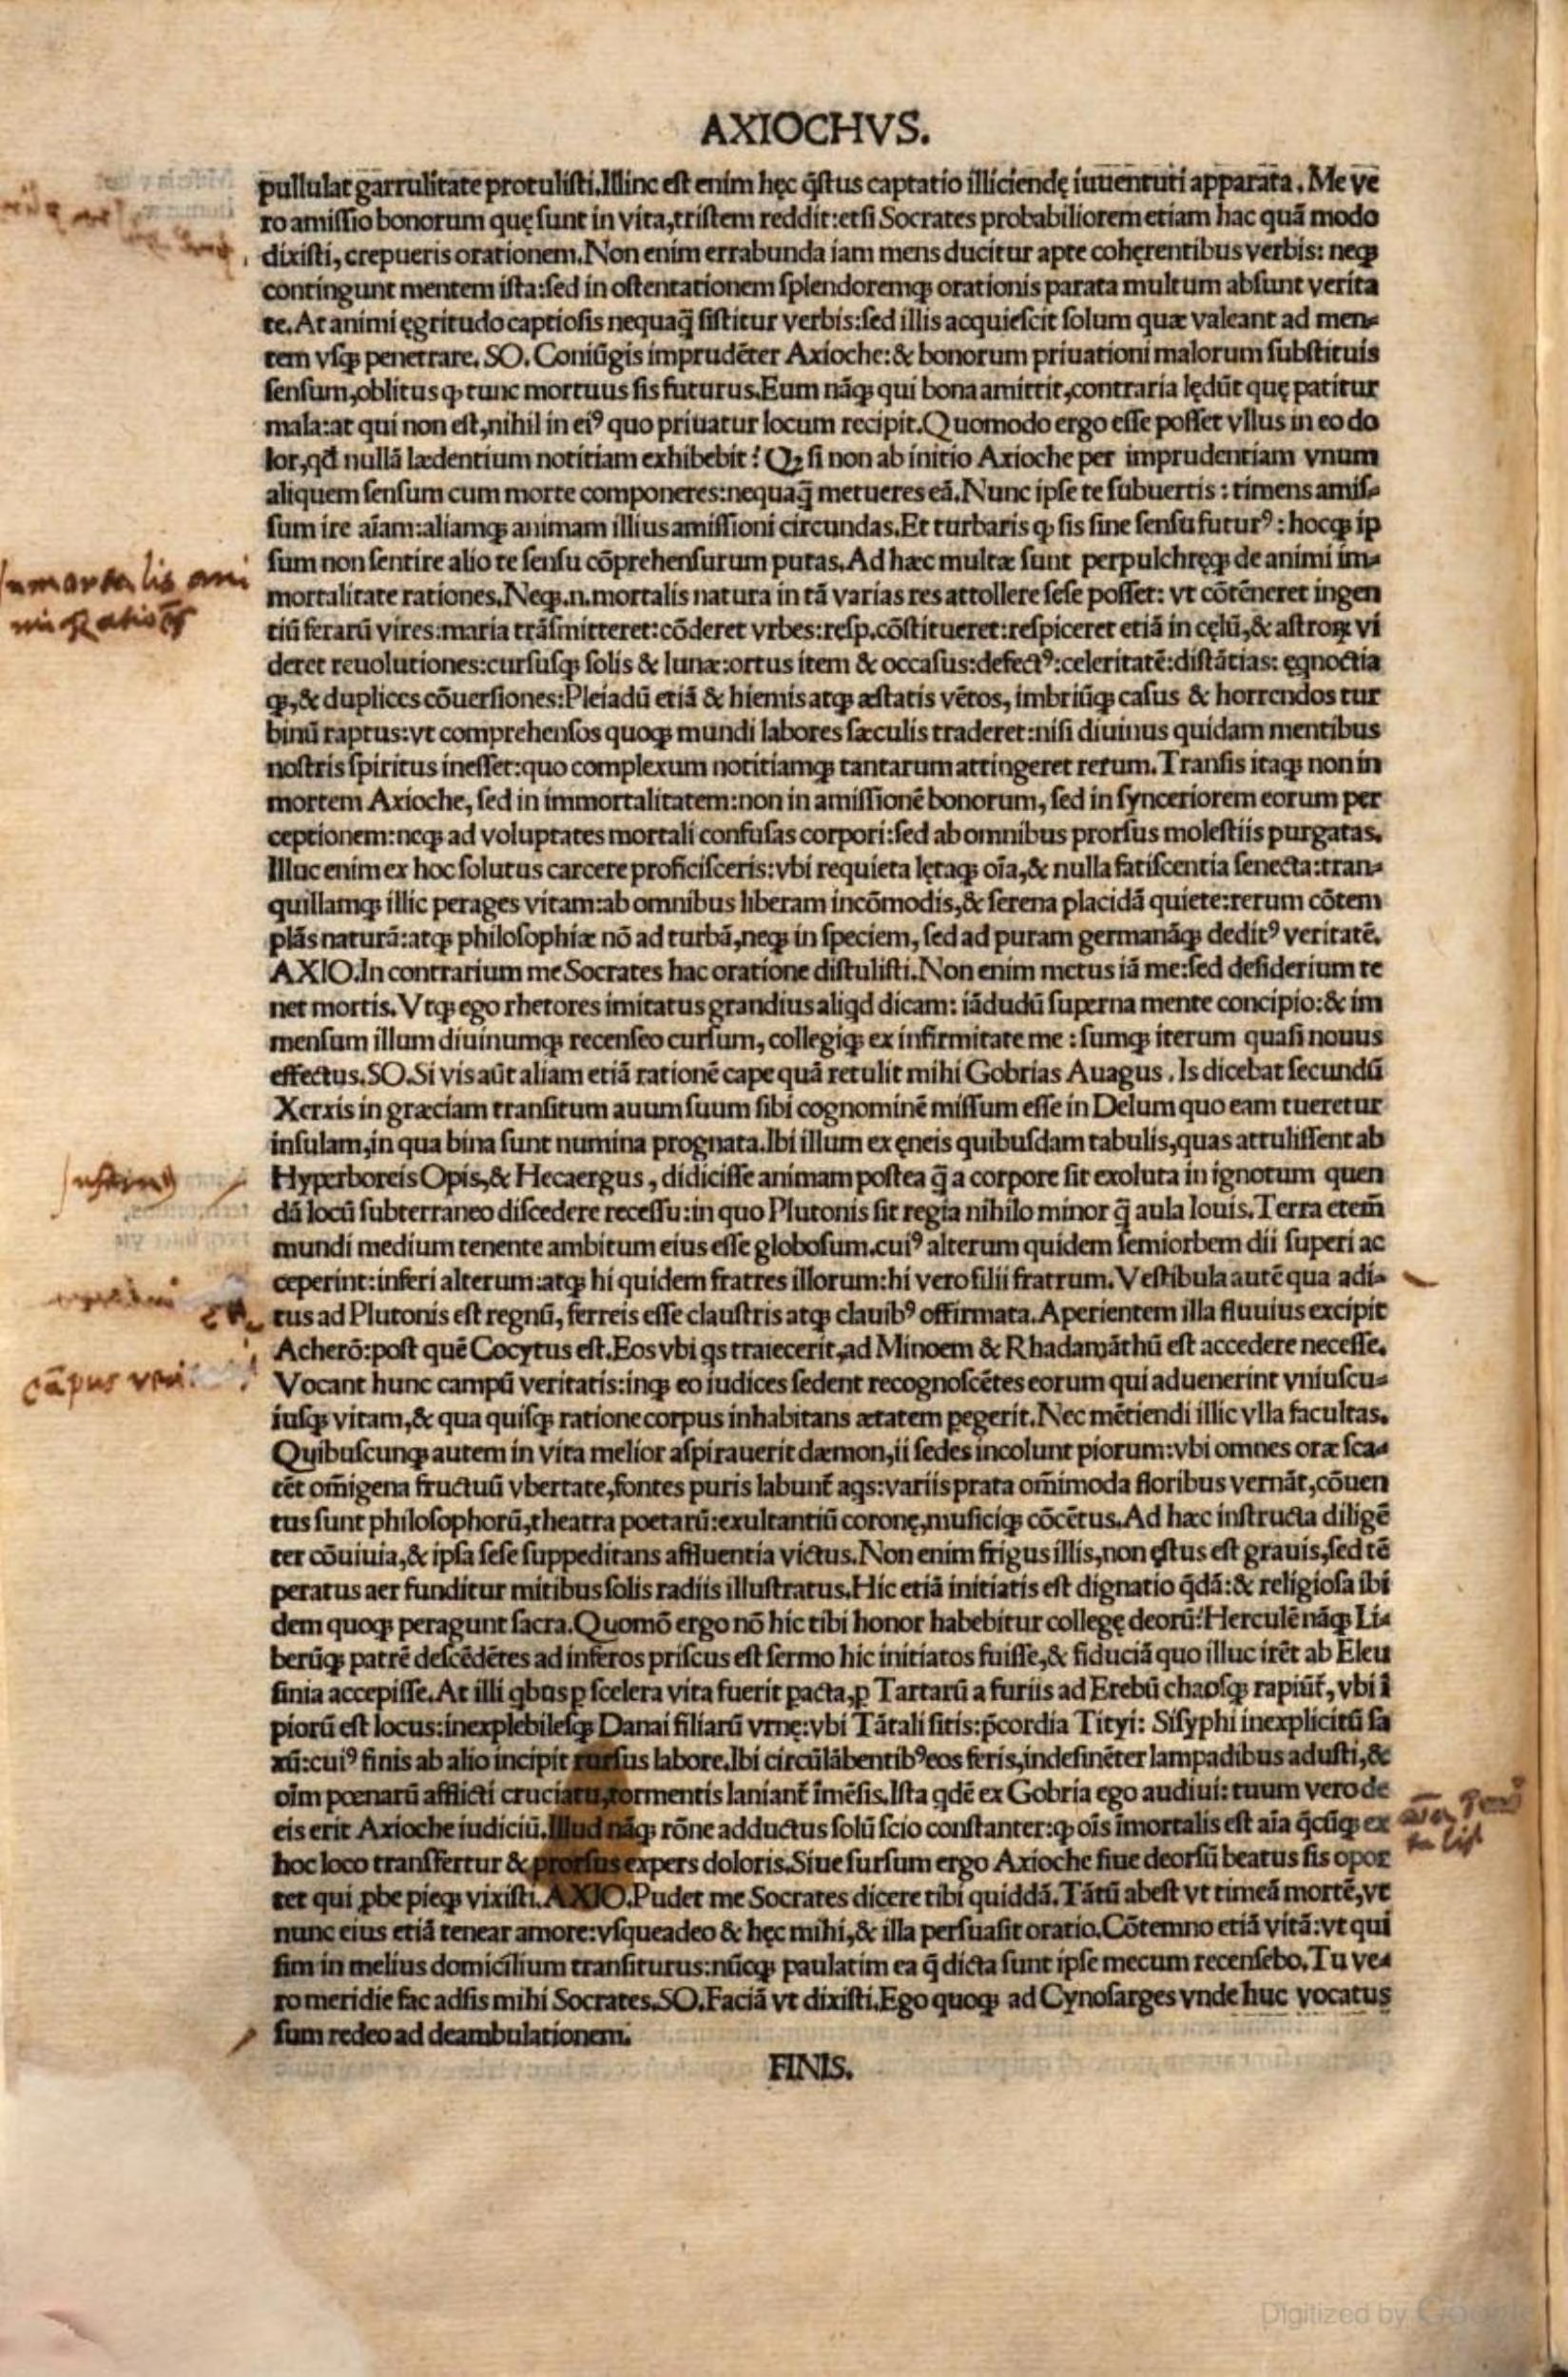 AXIOCHVS.
pullulat garrulitate protulisti.Illinc est enim hęc q̃stus captatio illiciendę iuuentuti apparata. Me ve
ro amissio bonorum quę sunt in vita,tristem reddit:etsi Socrates probabiliorem etiam hac quã modo
dixisti, crepueris orationem.Non enim errabunda iam mens ducitur apte cohęrentibus verbis: neqꝫ
contingunt mentem ista:sed in ostentationem splendoremqꝫ orationis parata multum absunt verita
te.At animi ęgritudo captiosis nequaq̃ sistitur verbis:sed illis acquiescit solum quæ valeant ad men-
tem vsqꝫ penetrare. SO. Coniũgis imprudẽter Axioche:& bonorum priuationi malorum substituis
sensum,oblitus ꝙ tunc mortuus sis futurus.Eum nãqꝫ qui bona amittit,contraria lędũt quę patitur
mala:at qui non est,nihil in eiꝰ quo priuatur locum recipit.Quomodo ergo esse posset vllus in eo do
lor,qd̃ nullã lædentium notitiam exhibebit? Qꝫ si non ab initio Axioche per imprudentiam vnum
aliquem sensum cum morte componeres:nequaq̃ metueres eã.Nunc ipse te subuertis: timens amis-
sum ire aĩam:aliamqꝫ animam illius amissioni circundas.Et turbaris ꝙ sis sine sensu futurꝰ: hocqꝫ ip
sum non sentire alio te sensu cõprehensurum putas.Ad hæc multæ sunt perpulchręqꝫ de animi im-
Inmortalis ani
mortalitate rationes.Neqꝫ.n.mortalis natura in tã varias res attollere sese posset: vt cõtẽneret ingen
tiũ ferarũ vires:maria trãsmitteret:cõderet vrbes:resp.cõstitueret:respiceret etiã in cęlũ,& astroꝝ vi
deret reuolutiones:cursusqꝫ solis & lunæ:ortus item & occasus:defectꝰ:celeritatẽ:distãtias: ęqnoctia
qꝫ,& duplices cõuersiones:Pleiadũ etiã & hiemis atqꝫ æstatis vẽtos, imbriũqꝫ casus & horrendos tur
binũ raptus:vt comprehensos quoqꝫ mundi labores sæculis traderet:nisi diuinus quidam mentibus
nostris spiritus inesset:quo complexum notitiamqꝫ tantarum attingeret rerum.Transis itaqꝫ non in
mortem Axioche, sed in immortalitatem:non in amissionẽ bonorum, sed in synceriorem eorum per
ceptionem:neqꝫ ad voluptates mortali confusas corpori:sed ab omnibus prorsus molestiis purgatas.
Illuc enim ex hoc solutus carcere proficisceris:vbi requieta lętaqꝫ oĩa,& nulla fatiscentia senecta:tran-
quillamqꝫ illic perages vitam:ab omnibus liberam incõmodis,& serena placidã quiete:rerum cõtem
plãs naturã:atqꝫ philosophiæ nõ ad turbã,neqꝫ in speciem, sed ad puram germanãqꝫ deditꝰ veritatẽ.
AXIO.In contrarium me Socrates hac oratione distulisti.Non enim metus iã me:sed desiderium te
net mortis. Vtqꝫ ego rhetores imitatus grandius aliqd dicam: iãdudũ superna mente concipio:& im
mensum illum diuinumqꝫ recenseo cursum, collegiqꝫ ex infirmitate me:sumqꝫ iterum quasi nouus
effectus.SO.Si vis aũt aliam etiã rationẽ cape quã retulit mihi Gobrias Auagus. Is dicebat secundũ
Xerxis in græciam transitum auum suum sibi cognominẽ missum esse in Delum quo eam tueretur
insulam,in qua bina sunt numina prognata.Ibi illum ex ęneis quibusdam tabulis,quas attulissent ab
Hyperboreis Opis,& Hecaergus, didicisse animam postea q̃ a corpore sit exoluta in ignotum quen
dã locũ subterraneo discedere recessu:in quo Plutonis sit regia nihilo minor q̃ aula Iouis.Terra etem̃
mundi medium tenente ambitum eius esse globosum.cuiꝰ alterum quidem semiorbem dii superi ac
ceperint:inferi alterum:atqꝫ hi quidem fratres illorum:hi vero filii fratrum.Vestibula autẽ qua adi-
tus ad Plutonis est regnũ, ferreis esse claustris atqꝫ clauibꝰ offirmata.Aperientem illa fluuius excipit
Acherõ:post quẽ Cocytus est.Eos vbi qs traiecerit,ad Minoem & Rhadamãthũ est accedere necesse.
cãpus veri
Vocant hunc campũ veritatis:inqꝫ eo iudices sedent recognoscẽtes eorum qui aduenerint vniuscu-
iusqꝫ vitam,& qua quisqꝫ ratione corpus inhabitans ætatem ꝑegerit.Nec mẽtiendi illic vlla facultas.
Quibuscunqꝫ autem in vita melior aspirauerit dæmon,ii sedes incolunt piorum:vbi omnes oræ sca-
tẽt om̃igena fructuũ vbertate,fontes puris labunt̃ aqs:variis prata om̃imoda floribus vernãt,cõuen
tus sunt philosophorũ,theatra poetarũ:exultantiũ coronę,musiciqꝫ cõcẽtus.Ad hæc instructa diligẽ
ter cõuiuia,& ipsa sese suppeditans affluentia victus.Non enim frigus illis,non ęstus est grauis,sed tẽ
peratus aer funditur mitibus solis radiis illustratus.Hic etiã initiatis est dignatio q̃dã:& religiosa ibi
dem quoqꝫ peragunt sacra.Quomõ ergo nõ hic tibi honor habebitur collegę deorũ?Herculẽ nãqꝫ Li-
berũqꝫ patrẽ descẽdẽtes ad inferos priscus est sermo hic initiatos fuisse,& fiduciã quo illuc irẽt ab Eleu
sinia accepisse.At illi qbus ꝑ scelera vita fuerit ꝑacta,ꝑ Tartarũ a furiis ad Erebũ chaosqꝫ rapiũt̃, vbi ĩ
piorũ est locus:inexplebilesqꝫ Danai filiarũ vrnę:vbi Tãtali sitis:p̃cordia Tityi: Sisyphi inexplicitũ sa
xũ:cuiꝰ finis ab alio incipit rursus labore.Ibi circũlãbentibꝰ eos feris,indesinẽter lampadibus adusti,&
oĩm pœnarũ afflicti cruciatu,tormentis laniant̃ ĩmẽsis.Ista qdẽ ex Gobria ego audiui: tuum vero de
eis erit Axioche iudiciũ.Illud nãqꝫ rõne adductus solũ scio constanter:ꝙ oĩs ĩmortalis est aĩa q̃cũqꝫ ex
hoc loco transfertur & prorsus expers doloris.Siue sursum ergo Axioche siue deorsũ beatus sis opor
tet qui ꝓbe pieqꝫ vixisti.AXIO.Pudet me Socrates dicere tibi quiddã.Tãtũ abest vt timeã mortẽ,vt
nunc eius etiã tenear amore:vsqueadeo & hęc mihi,& illa persuasit oratio.Cõtemno etiã vitã:vt qui
sim in melius domicilium transiturus:nũcqꝫ paulatim ea q̃ dicta sunt ipse mecum recensebo.Tu ve-
ro meridie fac adsis mihi Socrates.SO.Faciã vt dixisti.Ego quoqꝫ ad Cynosarges vnde huc vocatus
sum redeo ad deambulationem.
FINIS.
Digitized by Google